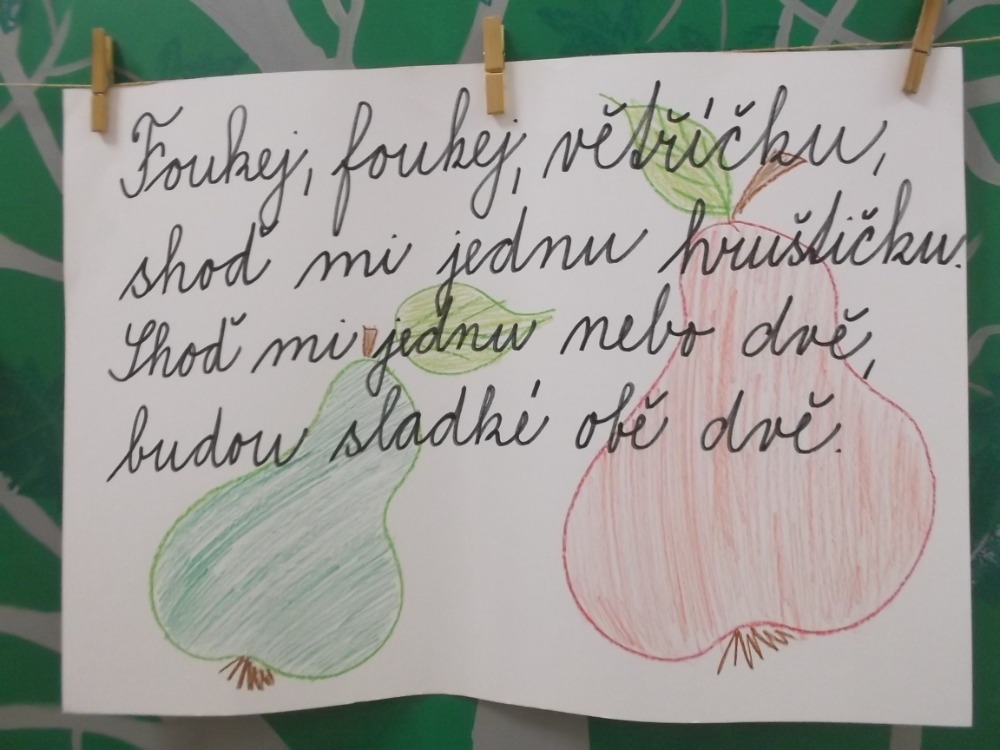 Foukej, foukej, větříčku,
shoď mi jednu hruštičku.
Shoď mi jednu nebo dvě,
budou sladké obě dvě.